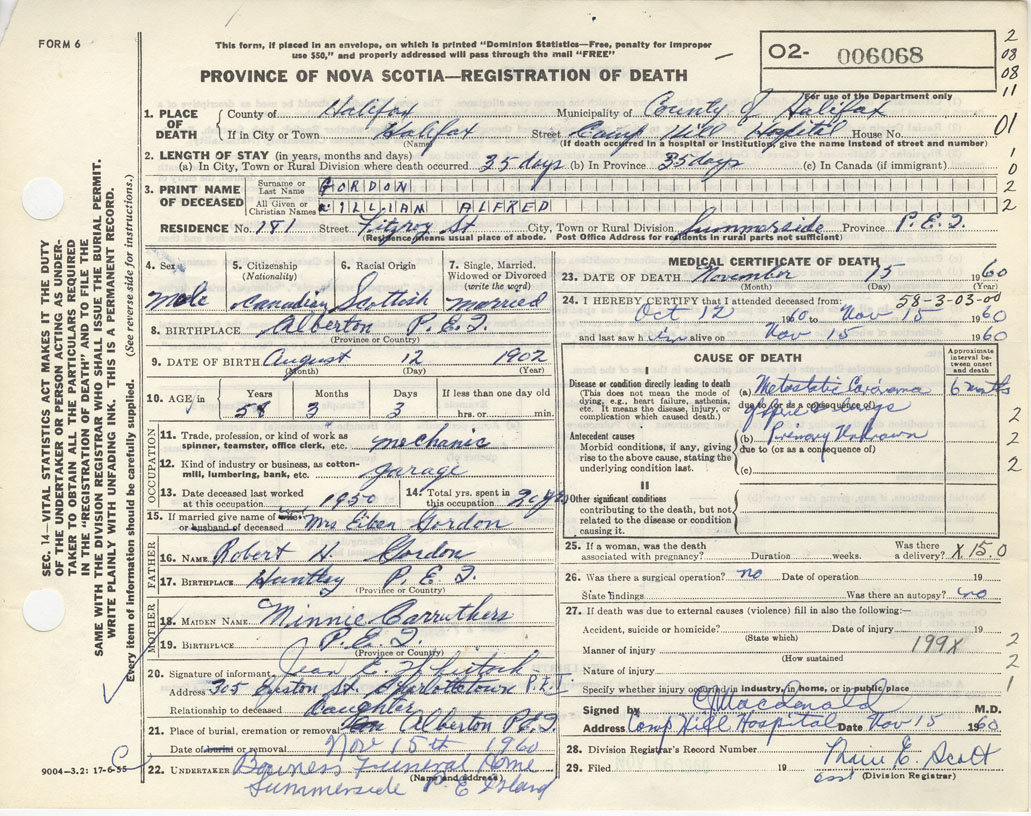 FORM 6
This form, if placed in an envelope, on which is printed "Dominion Statistics—Free, penalty for improper
use $50," and properly addressed will pass through the mail "FREE"
PROVINCE OF NOVA SCOTIA—REGISTRATION OF DEATH
02- 006068
For use of the Department only
2
08
08
11
01
1. PLACE OF DEATH County of Halifax Municipality of County of Halifax
If in City or Town Halifax Street Camp Hill Hospital House No.
(Name) (If death occurred in a hospital or institution, give the name instead of street and number)
2. LENGTH OF STAY (in years, months and days)
(a) In City, Town or Rural Division where death occurred 35 days (b) In Province 35 days (c) In Canada (if immigrant)
1
0
2
3. PRINT NAME OF DECEASED Surname or Last Name GORDON
All Given or Christian Names WILLIAM ALFRED
2
RESIDENCE No. 181 Street Fitzroy St City, Town or Rural Division Summerside Province P.E.I.
(Residence means usual place of abode. Post Office Address for residents in rural parts not sufficient)
4. Sex 5. Citizenship (Nationality) 6. Racial Origin 7. Single, Married, Widowed or Divorced (write the word)
Male Canadian Scottish married
8. BIRTHPLACE Alberton P.E.I.
(Province or Country)
9. DATE OF BIRTH August 12 1902
(Month) (Day) (Year)
10. AGE in Years Months Days If less than one day old
58 3 3 hrs. or min.
OCCUPATION
11. Trade, profession, or kind of work as spinner, teamster, office clerk, etc. mechanic
12. Kind of industry or business, as cotton-mill, lumbering, bank, etc. garage
13. Date deceased last worked at this occupation 1950 14. Total yrs. spent in this occupation
15. If married give name of wife or husband of deceased Mrs Eileen Gordon
FATHER
16. NAME Robert H. Gordon
17. BIRTHPLACE Huntley P.E.I.
(Province or Country)
MOTHER
18. MAIDEN NAME Minnie Carruthers
19. BIRTHPLACE P.E.I.
(Province or Country)
20. Signature of informant Jean E.
Address 305 St. Charlottetown P.E.I.
Relationship to deceased Daughter
21. Place of burial, cremation or removal Alberton P.E.I.
Date of burial or removal Nov 15th 1960
22. UNDERTAKER Bowness Funeral Home
(Name and address)
Summerside P. E. Island
MEDICAL CERTIFICATE OF DEATH
23. DATE OF DEATH November 15 1960
(Month) (Day) (Year)
24. I HEREBY CERTIFY that I attended deceased from: 58-3-03-00
Oct 12 1960 to Nov 15 1960
and last saw him alive on Nov 15 1960
CAUSE OF DEATH
Approximate interval between onset and death
I
Disease or condition directly leading to death
(This does not mean the mode of dying, e.g., heart failure, asthenia, etc. It means the disease, injury, or complication which caused death.)
(a) Metastatic Carcinoma 6 months
due to (or as a consequence of)
of
Antecedent causes
Morbid conditions, if any, giving rise to the above cause, stating the underlying condition last.
(b) Primary Unknown
due to (or as a consequence of)
(c)
2
2
2
II
Other significant conditions
contributing to the death, but not related to the disease or condition causing it.
25. If a woman, was the death associated with pregnancy? Duration weeks. Was there a delivery? X 15.0
26. Was there a surgical operation? no Date of operation 19
State findings Was there an autopsy? no
27. If death was due to external causes (violence) fill in also the following:—
Accident, suicide or homicide? Date of injury 19
(State which)
Manner of injury 199X
(How sustained
Nature of injury
Specify whether injury occurred in industry, in home, or in public place
2
2
1
Signed by Macdonald M.D.
Address Camp Hill Hospital Date Nov 15 1960
28. Division Registrar's Record Number
29. Filed 19 Marie E. Scott
(Division Registrar)
SEC. 14—VITAL STATISTICS ACT MAKES IT THE DUTY
OF THE UNDERTAKER OR PERSON ACTING AS UNDER-
TAKER TO OBTAIN ALL THE PARTICULARS REQUIRED
IN THE "REGISTRATION OF DEATH" AND TO FILE THE
SAME WITH THE DIVISION REGISTRAR WHO SHALL ISSUE THE BURIAL PERMIT.
WRITE PLAINLY WITH UNFADING INK. THIS IS A PERMANENT RECORD.
Every item of information should be carefully supplied. (See reverse side for instructions.)
9004—3.2: 17-6-55